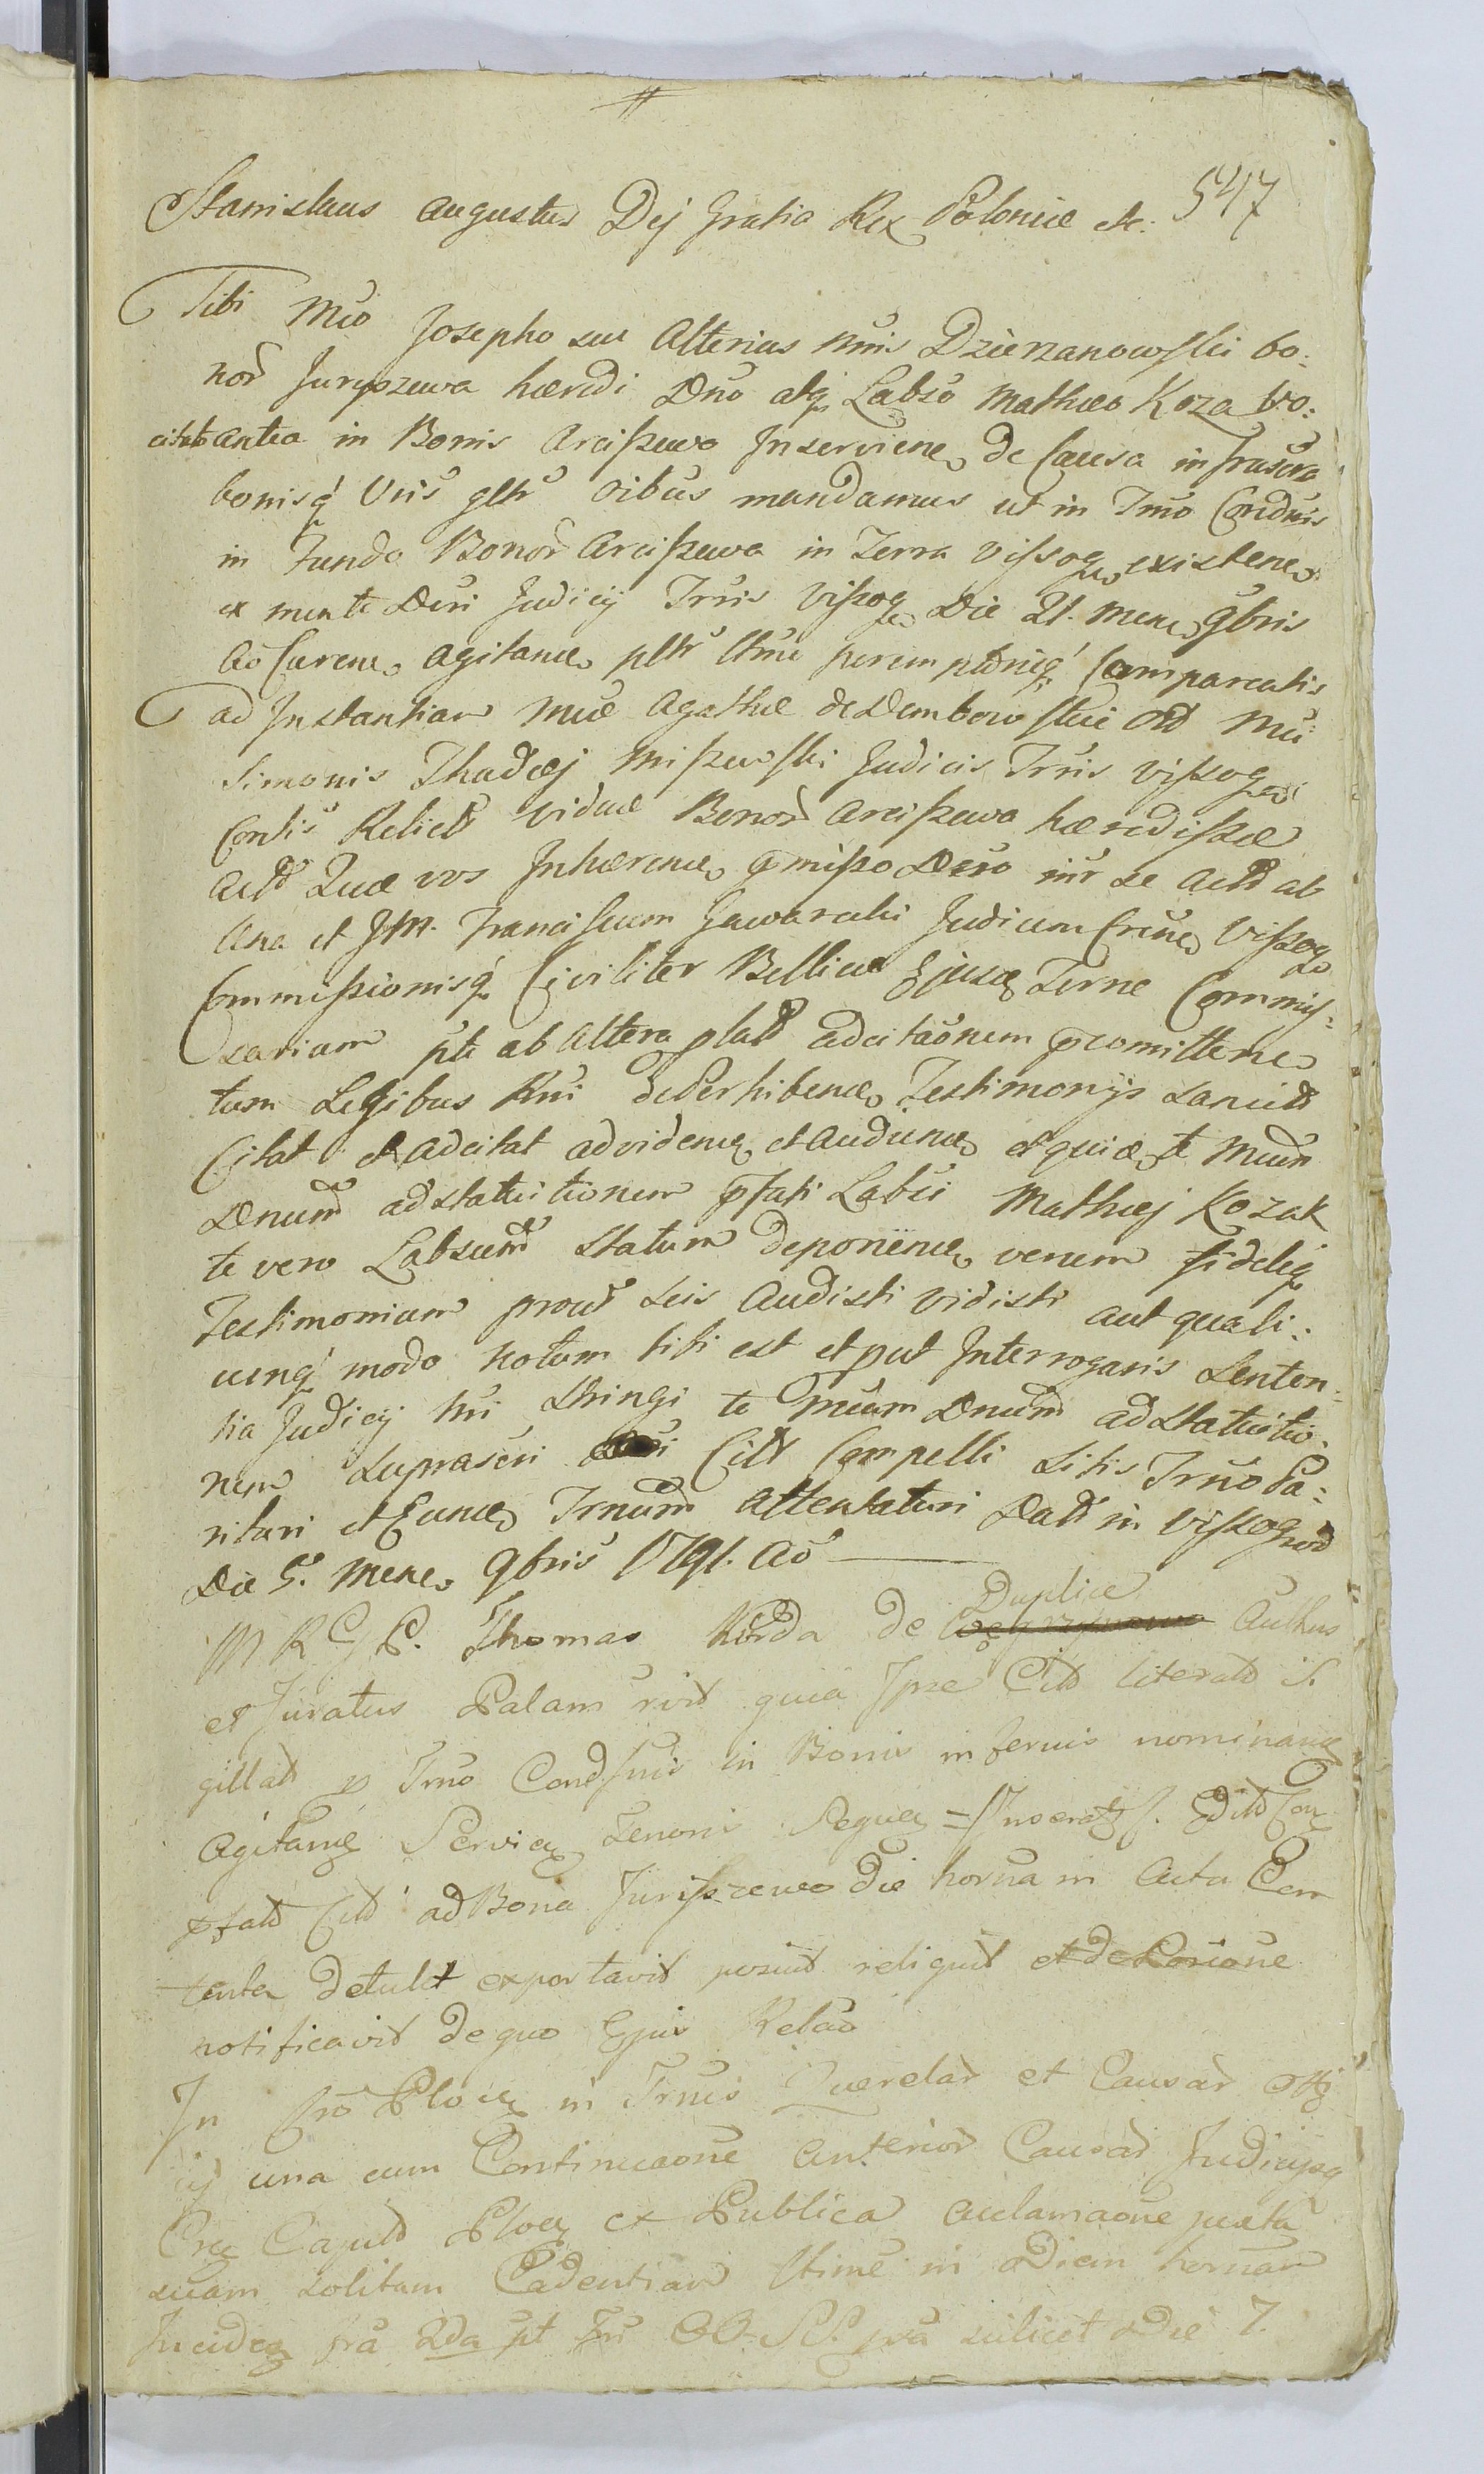 547
Stanislaus Augustus Dej Gratia Rex Poloniæ etc.
Tibi Mco Josepho seu Alterius nminis Dzierzanowski bo:
nor Juryszewa hæredi Dno atq Labso Mathæo Koza vo:
citato antea in Bonis Arcißewo Inserviene de Causa infrascra
bonisq Vris gltr oibus mandamus ut in Tmo Condnis
in Fundo Bonor Arcißewa in Terra Vißog existene
ex mente Dcri Judicij Trris Vißog Die 21. Mene 9bris
Ao Curene agitane pltr ltme peremptorieq Compareatis
ad Instantiam Mcæ Agathæ de Dembowskie Old Mci
Simonis Thadæj Mißewski Judicis Trris Vißog
Contis Relictæ viduæ Bonor Arcißewa hæredißæ
Act Quæ vos Inhærene præmißo Dcro inr se Act ab
Una et JM. Franciscum Gawarecki Judicem Crene Vißog
Commißionisq Civiliter Bellicæ Ejusd Terræ Commis:
sarium pte ab altera lato adcitaonem promittene
tum Legibus Rni de Perhibene Testimonijs sancit
Citat et adcitat ad videne et audiene quia te Mcum
Dnum ad statuitionem præfati Labsi Mathæj Kozak
te vero Labsum statum deponene verum fideleq
Testimonium prout scis Audisti vidisti aut quali:
cunq modo notum tibi est et put Interrogaris Senten:
tia Judicij hui stringi te Mcum Dnum ad statuitio:
nem suprascri Citt Compelli Litis Trno Pa:
rituri et Eune Trnum attentaturi Datt in Vißogrod
Die 5. Mene 9bris 1791. Ao
M R G P. Thomas Korda de Duplice Authus
et Juratus Palam rvit quia Ipse Citt literatt Si
gillatt p Trno Condsnis in Bonis inferius nominan
Agitane Servien tenoris Sequen
præfatt Citt ad Bona Jurißzewo Die horna in Acta Con
tenta detulit exportavit posuit reliquit et de Posione
notificavit de quo Ejus Relao
In Cro Plocen in Trnis Querelar et Causar Offi
cij una cum Continuaone Anterior Causar Judicijsq
Cren Capitt Plocen ex Publica acclamaone juxta
suam solitam Cadentiam ltime in Diem hornam
Inciden fra 2da pt Fn OO. SS. pra scilicet Die 7.